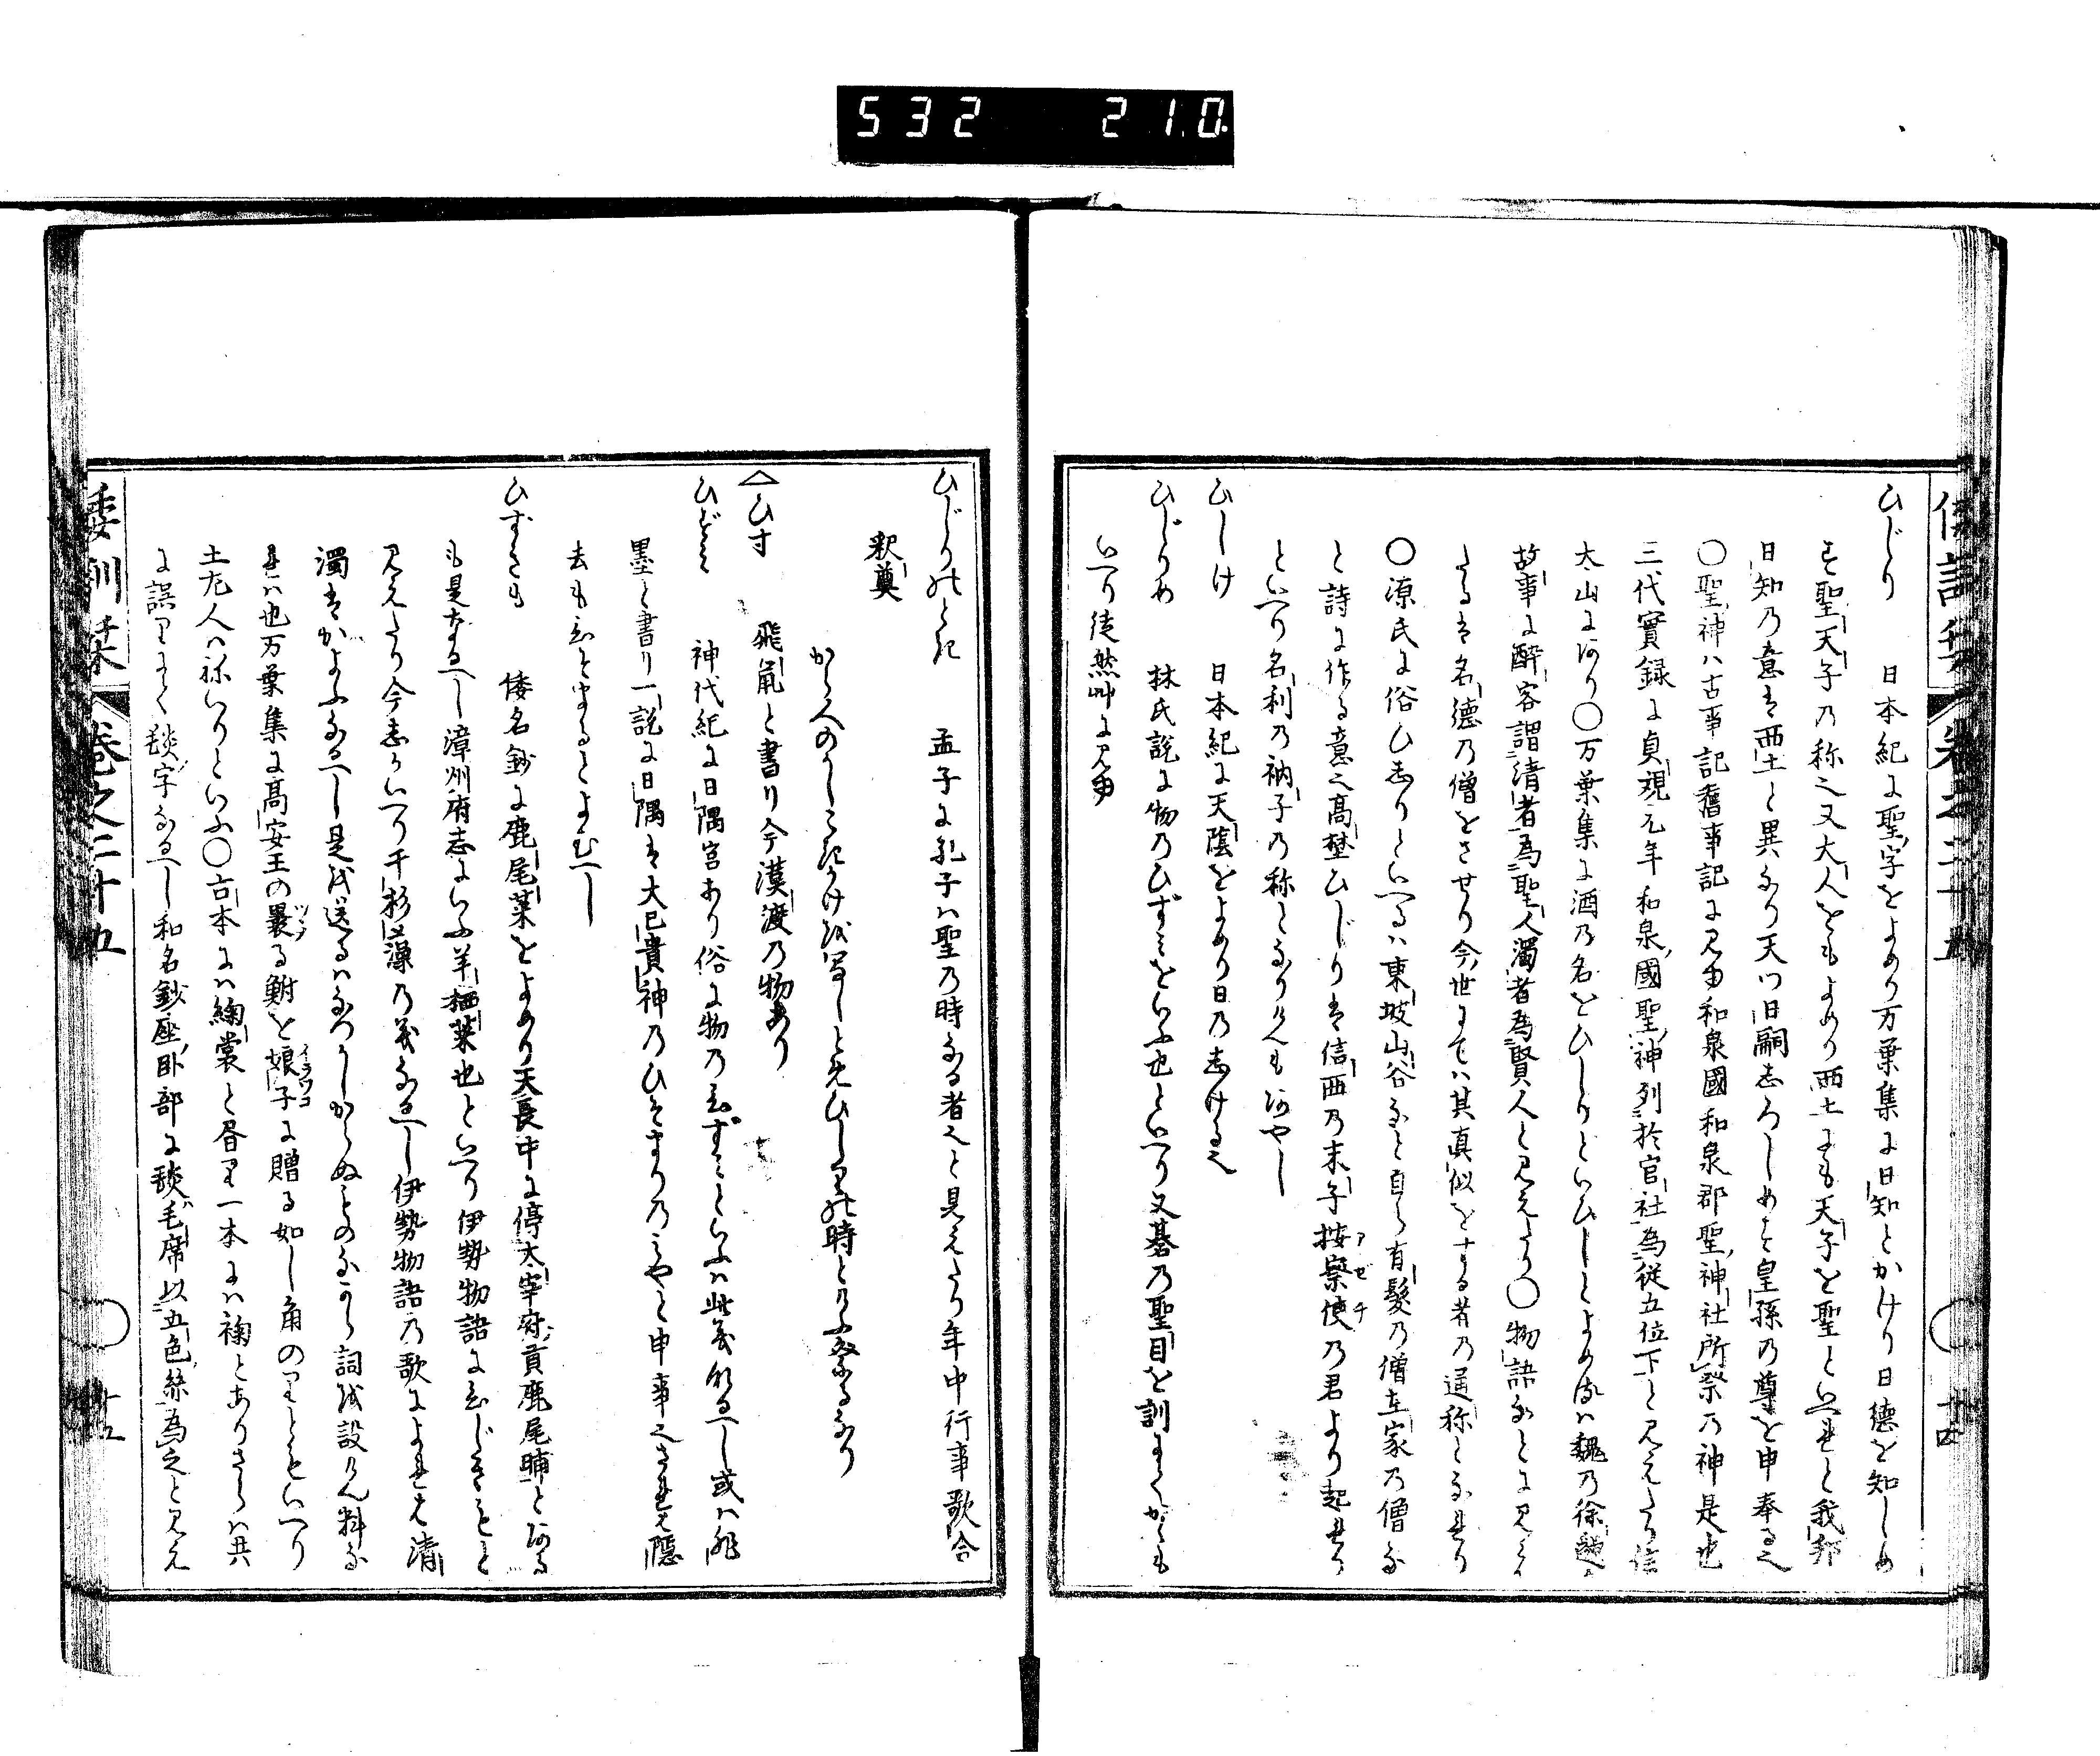 532 210.
ひじり 日本紀に聖字をよめり万葉集に日知とかけり日徳を知しめ
す聖天子の称也又大人をもよめり西土にも天子を聖といへれと我邦
日知の意は西土と異なり天つ日嗣志ろしめす皇孫の尊を申奉る也
〇聖神ハ古事記舊事記に見ゆ和泉國和泉郡聖神社所祭の神是也
三代實録に貞観元年和泉國聖神列於官社為従五位下と見えたり信
太山にあり〇万葉集に酒の名をひしりといひしとよめるハ魏の徐邈か
故事に酔客謂清者為聖人濁者為賢人と見えたり〇物語なとに見え
たるは名徳の僧をさせり今世にてハ其真似をする者の通称となれり
〇源氏に俗ひじりといへるハ東坡山谷なと自ら有髪の僧在家の僧な
と詩に作る意也高埜ひじりは信西の末子按察使アゼチの君より起れり
といへり名利の衲子の称となりけんもあやし
ひしけ 日本紀に天蔭をよめり日の志ける也
ひじりめ 林氏説に物のひずみをいふ也といへり又碁の聖目を訓にてかくも
いへり徒然艸に見ゆ
ひじりのとき 孟子に孔子ハ聖の時なる者也と見えたり年中行事歌合
釈奠
からへのかしこきかけを写しとめひしりの時とそいふ祭るなり
△ひす 飛𩾇と書り今漢渡の物あり
ひずみ 神代紀に日隅宮あり俗に物のひずみといふハ此義なるへし或ハ飛
墨と書り一説に日隅は大己貴神のひそまりのみやと申事也されハ隠
去もひそまるとよむへし
ひずきも 倭名鈔に鹿尾菜をよめり天長中に停太宰府貢鹿尾脯とある
も是なるへし漳州府志にいふ羊栖菜也といへり伊勢物語にひじきもと
見えたり今志かいへり干杉藻の義なるへし伊勢物語の歌によれは清
濁はかよふなるへし是を送るハなつかしからぬものなから詞を設けん料な
れハ也万葉集に高安王の裹ツヽメる鮒を娘子イラツコに贈る如し角のりともいへり
土左人ハ祢いりといふ〇古本にハ絢裳と書り一本にハ裪とありさらハ共
に誤りにて毯字なるへし和名鈔座臥部に毯毛席以五色絲為之と見え
倭訓栞 巻之二十五 廿五